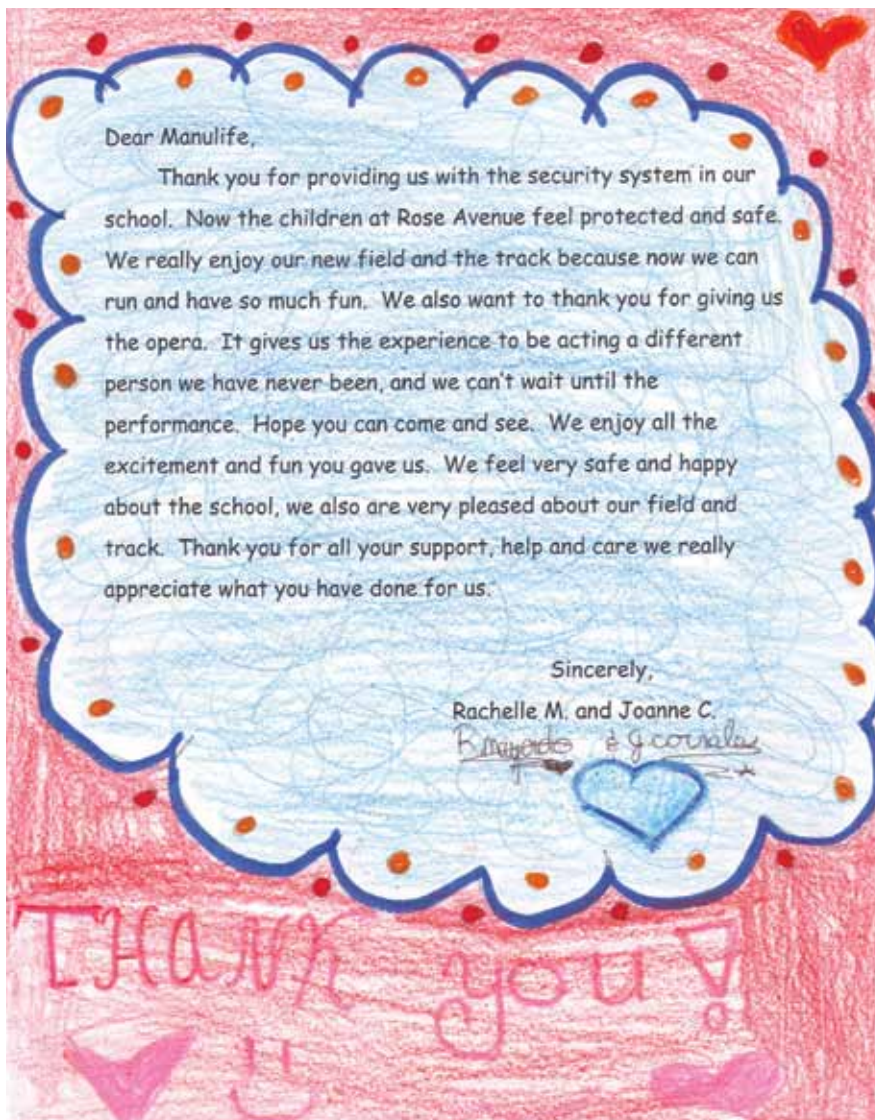 Dear Manulife,
Thank you for providing us with the security system in our
school. Now the children at Rose Avenue feel protected and safe.
We really enjoy our new field and the track because now we can
run and have so much fun. We also want to thank you for giving us
the opera. It gives us the experience to be acting a different
person we have never been, and we can't wait until the
performance. Hope you can come and see. We enjoy all the
excitement and fun you gave us. We feel very safe and happy
about the school, we also are very pleased about our field and
track. Thank you for all your support, help and care we really
appreciate what you have done for us.
Sincerely,
Rachelle M. and Joanne C.
&
THANK you!